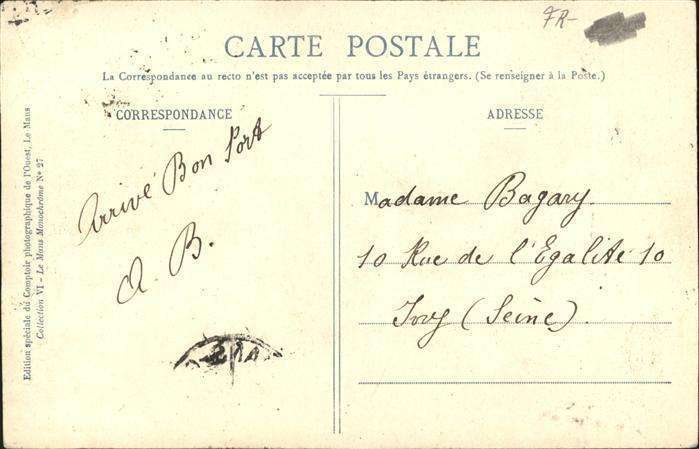 FR-
CARTE POSTALE
La Correspondance au recto n'est pas acceptée par tous les Pays étrangers. (Se renseigner à la Poste.)
CORRESPONDANCE
Arrivé Bon Port
A. B.
ADRESSE
Madame Bagary.
10 Rue de l'Egalité 10
Ivry (Seine).
Edition spéciale du Comptoir photographique de l'Ouest, Le Mans
Collection VI - Le Mans Monochrôme Nº 27